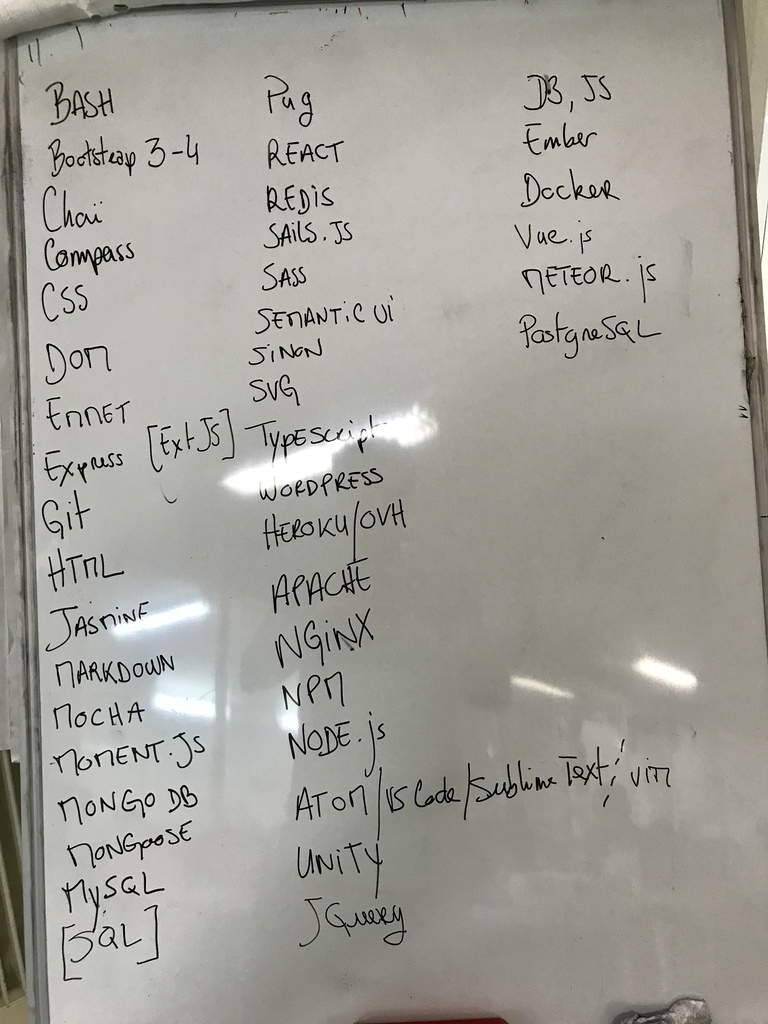 BASH
Bootstrap 3-4
Chaï
Compass
CSS
DOM
EMMET
Express [ExtJS]
Git
HTML
JASMINE
MARKDOWN
MOCHA
MOMENT.JS
MONGO DB
MONGOOSE
MySQL
[SQL]
Pug
REACT
REDiS
SAiLS.JS
SASS
SEMANTiC Ui
SiNON
SVG
TYPEScript
WORDPRESS
HEROKU/OVH
APACHE
NGiNX
NPM
NODE.js
ATOM/VS Code/Sublime Text/ViM
UNiTY
JQuery
D3, JS
Ember
Docker
Vue.js
METEOR.js
PostgreSQL